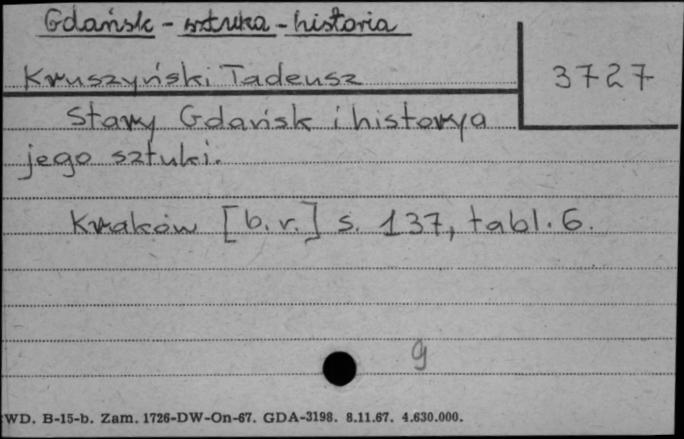 Gdańsk - sztuka - historia
Kruszyński Tadeusz
3727
Stary Gdańsk i historya
jego sztuki.
Kraków [b.r.] s. 137, tabl. 6.
g
WD. B-15-b. Zam. 1726-DW-On-67. GDA-3198. 8.11.67. 4.630.000.